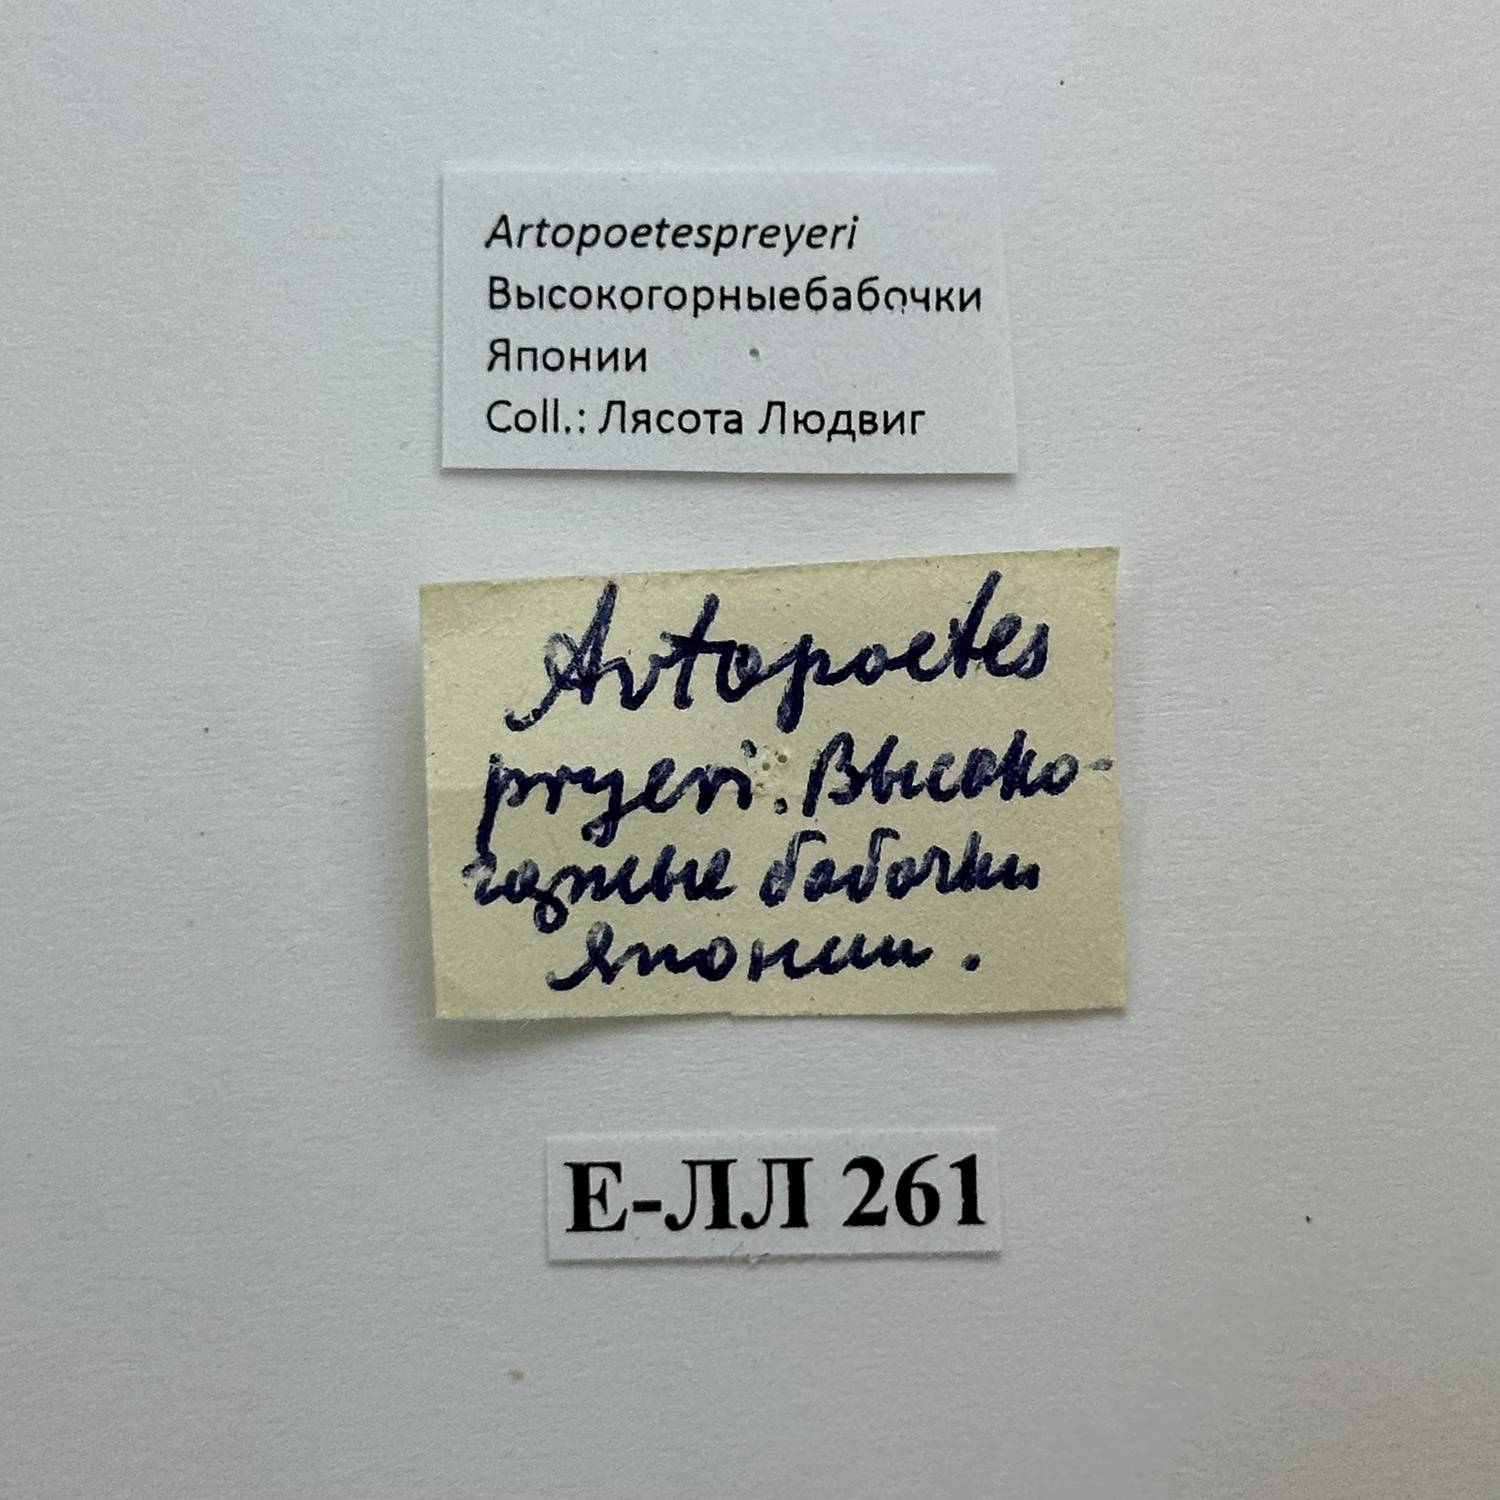 Artopoetespreyeri
Высокогорныебабочки
Японии
Coll.: Лясота Людвиг
Artopoetes
pryeri. Высоко-
горные бабочки
Японии.
Е-ЛЛ 261